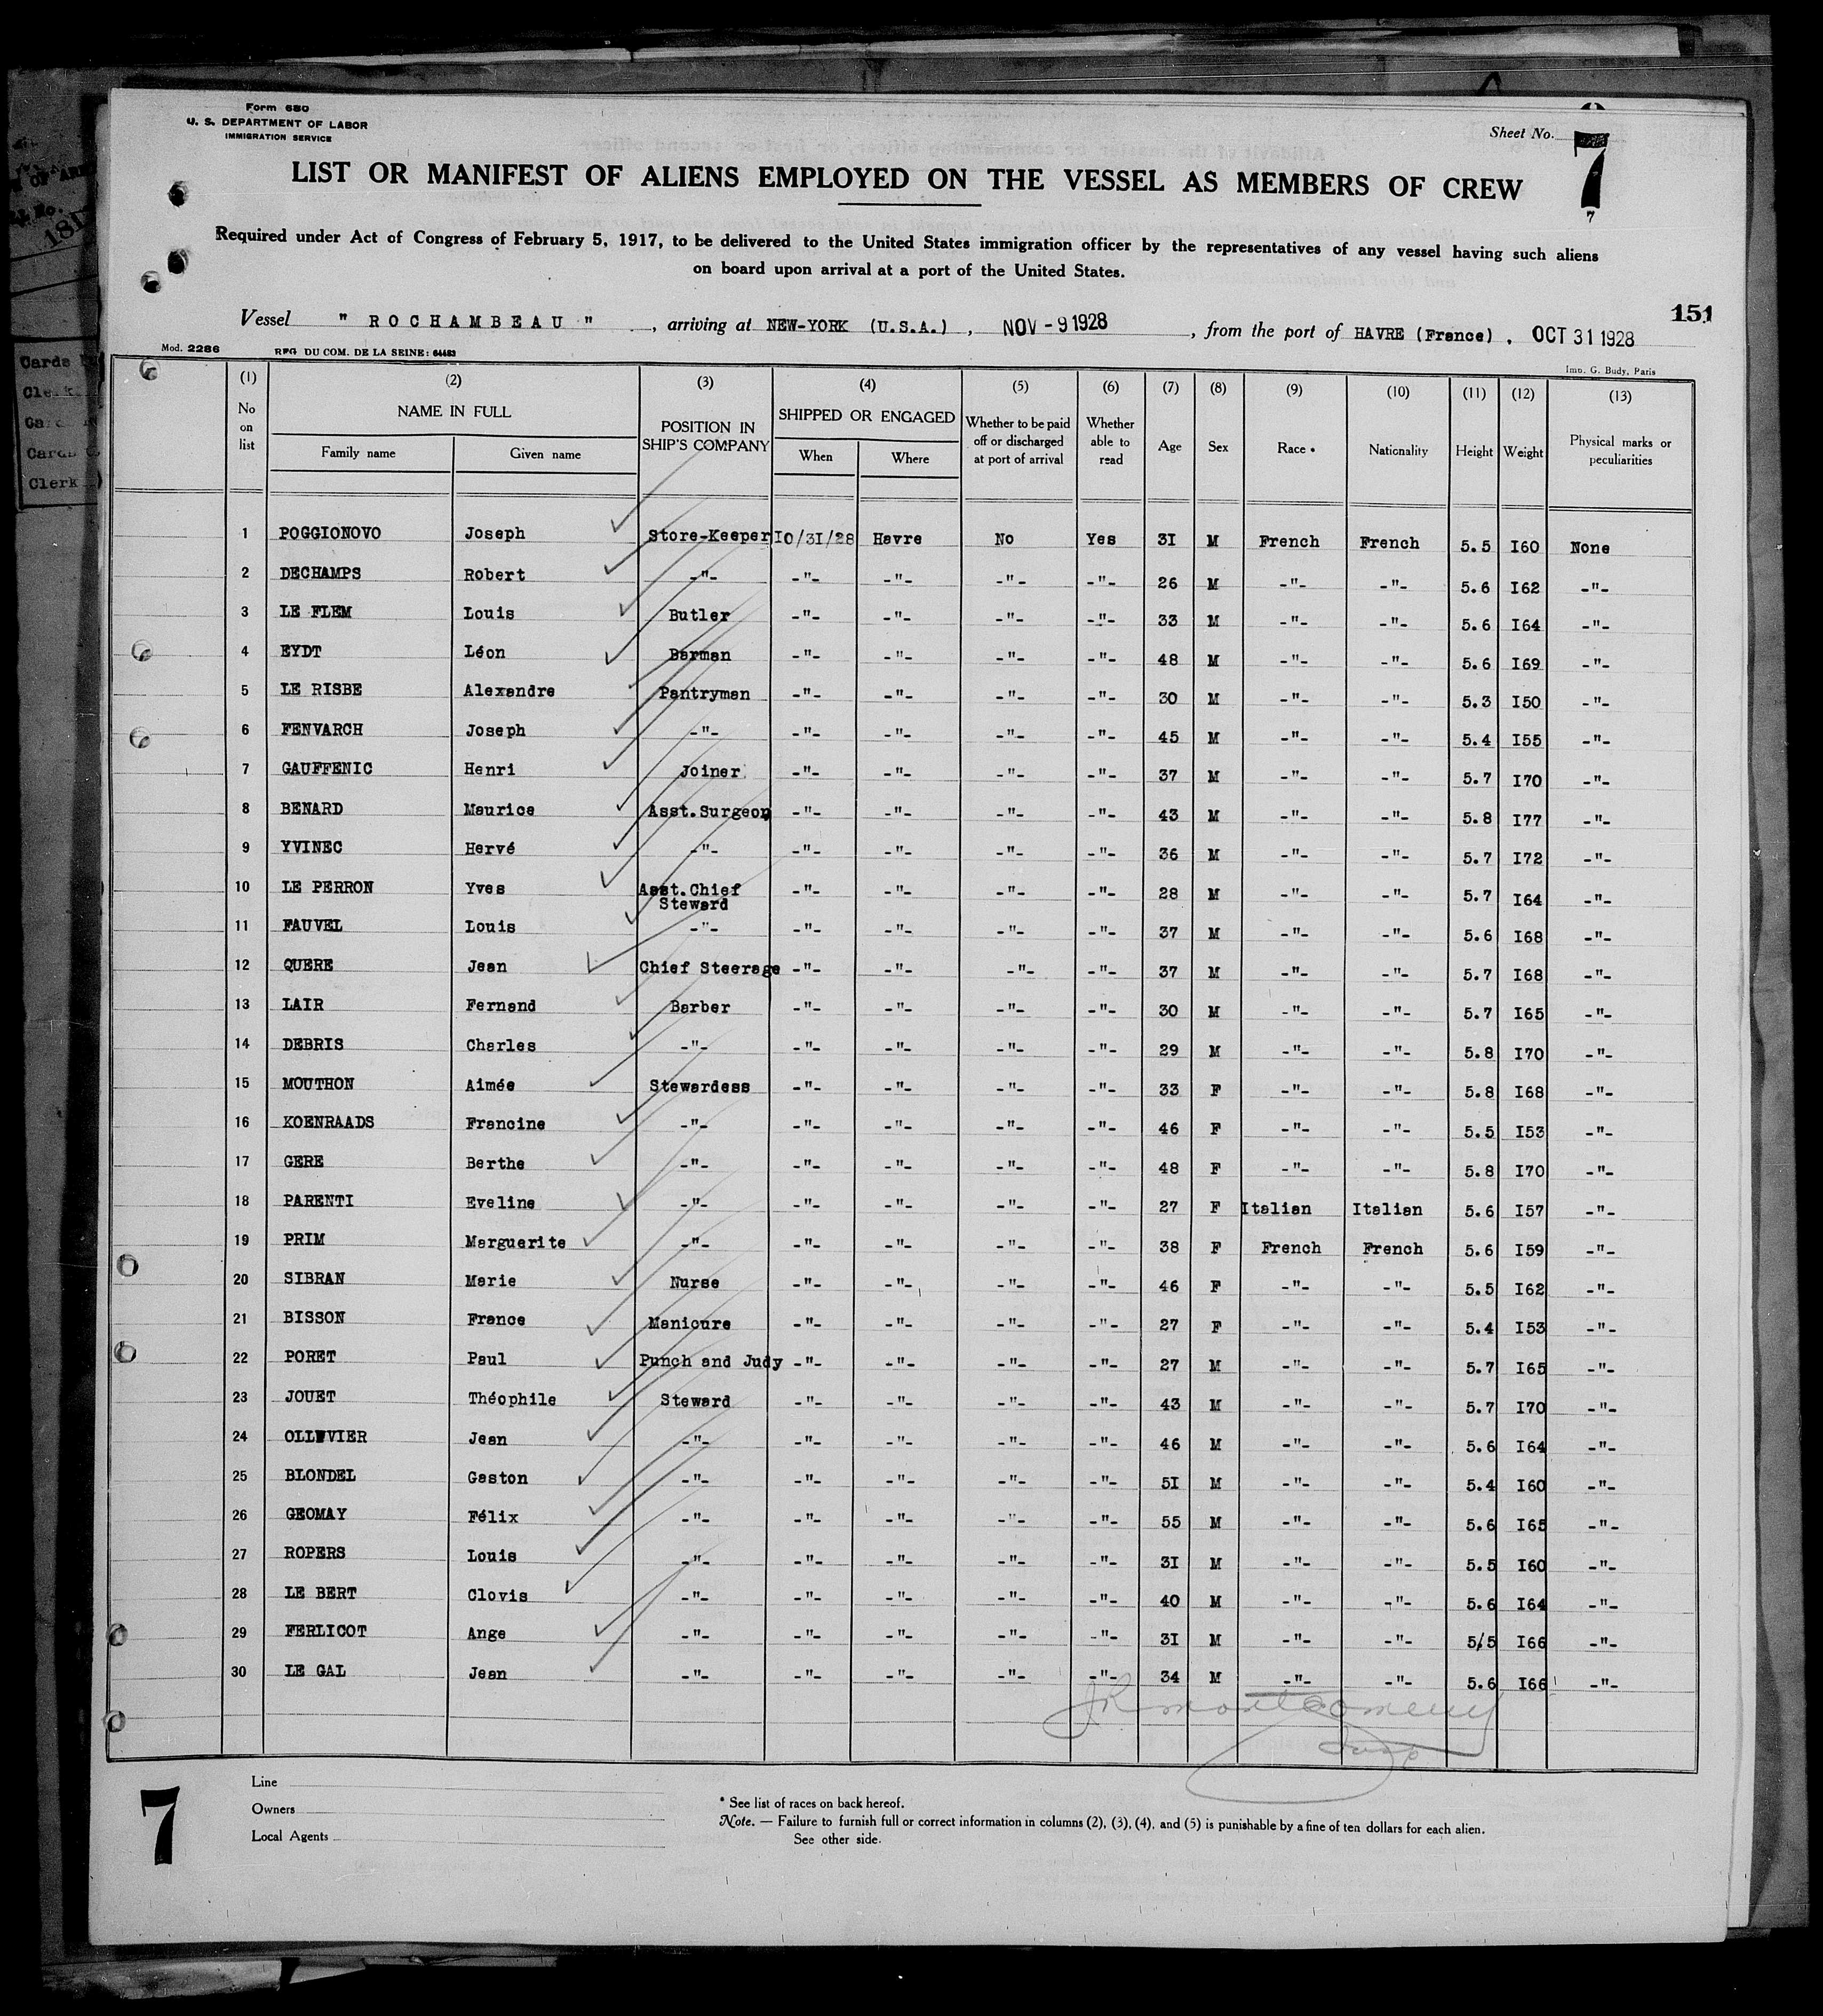 Form 680
U. S. DEPARTMENT OF LABOR
IMMIGRATION SERVICE
Sheet No. 7
7
LIST OR MANIFEST OF ALIENS EMPLOYED ON THE VESSEL AS MEMBERS OF CREW
Required under Act of Congress of February 5, 1917, to be delivered to the United States immigration officer by the representatives of any vessel having such aliens
on board upon arrival at a port of the United States.
151
Vessel " ROCHAMBEAU " , arriving at NEW-YORK (U.S.A.) , NOV - 9 1928 , from the port of HAVRE (France) , OCT 31 1928
Mod. 2286 REG. DU COM. DE LA SEINE: 64483 Imp. G. Budy, Paris
(1) (2) (3) (4) (5) (6) (7) (8) (9) (10) (11) (12) (13)
No on list NAME IN FULL POSITION IN SHIP'S COMPANY SHIPPED OR ENGAGED Whether to be paid off or discharged at port of arrival Whether able to read Age Sex Race * Nationality Height Weight Physical marks or peculiarities
Family name Given name When Where
1 POGGIONOVO Joseph Store-Keeper I0/3I/28 Havre No Yes 3I M French French 5.5 I60 None
2 DECHAMPS Robert -"- -"- -"- -"- -"- 26 M -"- -"- 5.6 I62 -"-
3 LE FLEM Louis Butler -"- -"- -"- -"- 33 M -"- -"- 5.6 I64 -"-
4 EYDT Léon Barman -"- -"- -"- -"- 48 M -"- -"- 5.6 I69 -"-
5 LE RISBE Alexandre Pantryman -"- -"- -"- -"- 30 M -"- -"- 5.3 I50 -"-
6 FENVARCH Joseph -"- -"- -"- -"- -"- 45 M -"- -"- 5.4 I55 -"-
7 GAUFFENIC Henri Joiner -"- -"- -"- -"- 37 M -"- -"- 5.7 I70 -"-
8 BENARD Maurice Asst.Surgeon -"- -"- -"- -"- 43 M -"- -"- 5.8 I77 -"-
9 YVINEC Hervé -"- -"- -"- -"- -"- 36 M -"- -"- 5.7 I72 -"-
10 LE PERRON Yves Asst.Chief Steward -"- -"- -"- -"- 28 M -"- -"- 5.7 I64 -"-
11 FAUVEL Louis -"- -"- -"- -"- -"- 37 M -"- -"- 5.6 I68 -"-
12 QUERE Jean Chief Steerage -"- -"- -"- -"- 37 M -"- -"- 5.7 I68 -"-
13 LAIR Fernand Barber -"- -"- -"- -"- 30 M -"- -"- 5.7 I65 -"-
14 DEBRIS Charles -"- -"- -"- -"- -"- 29 M -"- -"- 5.8 I70 -"-
15 MOUTHON Aimée Stewardess -"- -"- -"- -"- 33 F -"- -"- 5.8 I68 -"-
16 KOENRAADS Francine -"- -"- -"- -"- -"- 46 F -"- -"- 5.5 I53 -"-
17 GERE Berthe -"- -"- -"- -"- -"- 48 F -"- -"- 5.8 I70 -"-
18 PARENTI Eveline -"- -"- -"- -"- -"- 27 F Italian Italian 5.6 I57 -"-
19 PRIM Marguerite -"- -"- -"- -"- -"- 38 F French French 5.6 I59 -"-
20 SIBRAN Marie Nurse -"- -"- -"- -"- 46 F -"- -"- 5.5 I62 -"-
21 BISSON France Manicure -"- -"- -"- -"- 27 F -"- -"- 5.4 I53 -"-
22 PORET Paul Punch and Judy -"- -"- -"- -"- 27 M -"- -"- 5.7 I65 -"-
23 JOUET Théophile Steward -"- -"- -"- -"- 43 M -"- -"- 5.7 I70 -"-
24 OLLIVIER Jean -"- -"- -"- -"- -"- 46 M -"- -"- 5.6 I64 -"-
25 BLONDEL Gaston -"- -"- -"- -"- -"- 5I M -"- -"- 5.4 I60 -"-
26 GEOMAY Félix -"- -"- -"- -"- -"- 55 M -"- -"- 5.6 I65 -"-
27 ROPERS Louis -"- -"- -"- -"- -"- 3I M -"- -"- 5.5 I60 -"-
28 LE BERT Clovis -"- -"- -"- -"- -"- 40 M -"- -"- 5.6 I64 -"-
29 FERLICOT Ange -"- -"- -"- -"- -"- 3I M -"- -"- 5/5 I66 -"-
30 LE GAL Jean -"- -"- -"- -"- -"- 34 M -"- -"- 5.6 I66 -"-
JR Montgomery
Line
Owners
Local Agents
7
* See list of races on back hereof.
Note. — Failure to furnish full or correct information in columns (2), (3), (4), and (5) is punishable by a fine of ten dollars for each alien.
See other side.